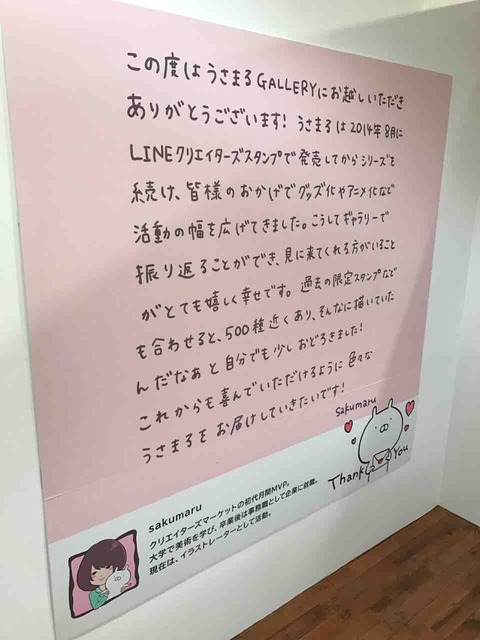 この度はうさまるGALLERYにお越しいただき
ありがとうございます! うさまるは2014年8月に
LINEクリエイターズスタンプで発売してからシリーズを
続け、皆様のおかげでグッズ化やアニメ化など
活動の幅を広げてきました。こうしてギャラリーで
振り返ることができ、見に来てくれる方がいること
がとても嬉しく幸せです。過去の限定スタンプなど
も合わせると、500種近くあり、そんなに描いていた
んだなぁと自分でも少しおどろきました!
これからも喜んでいただけるように色々な
うさまるをお届けしていきたいです!
sakumaru
Thank You
sakumaru
クリエイターズマーケットの初代月間MVP。
大学で美術を学び、卒業後は事務職として企業に就職。
現在は、イラストレーターとして活動。